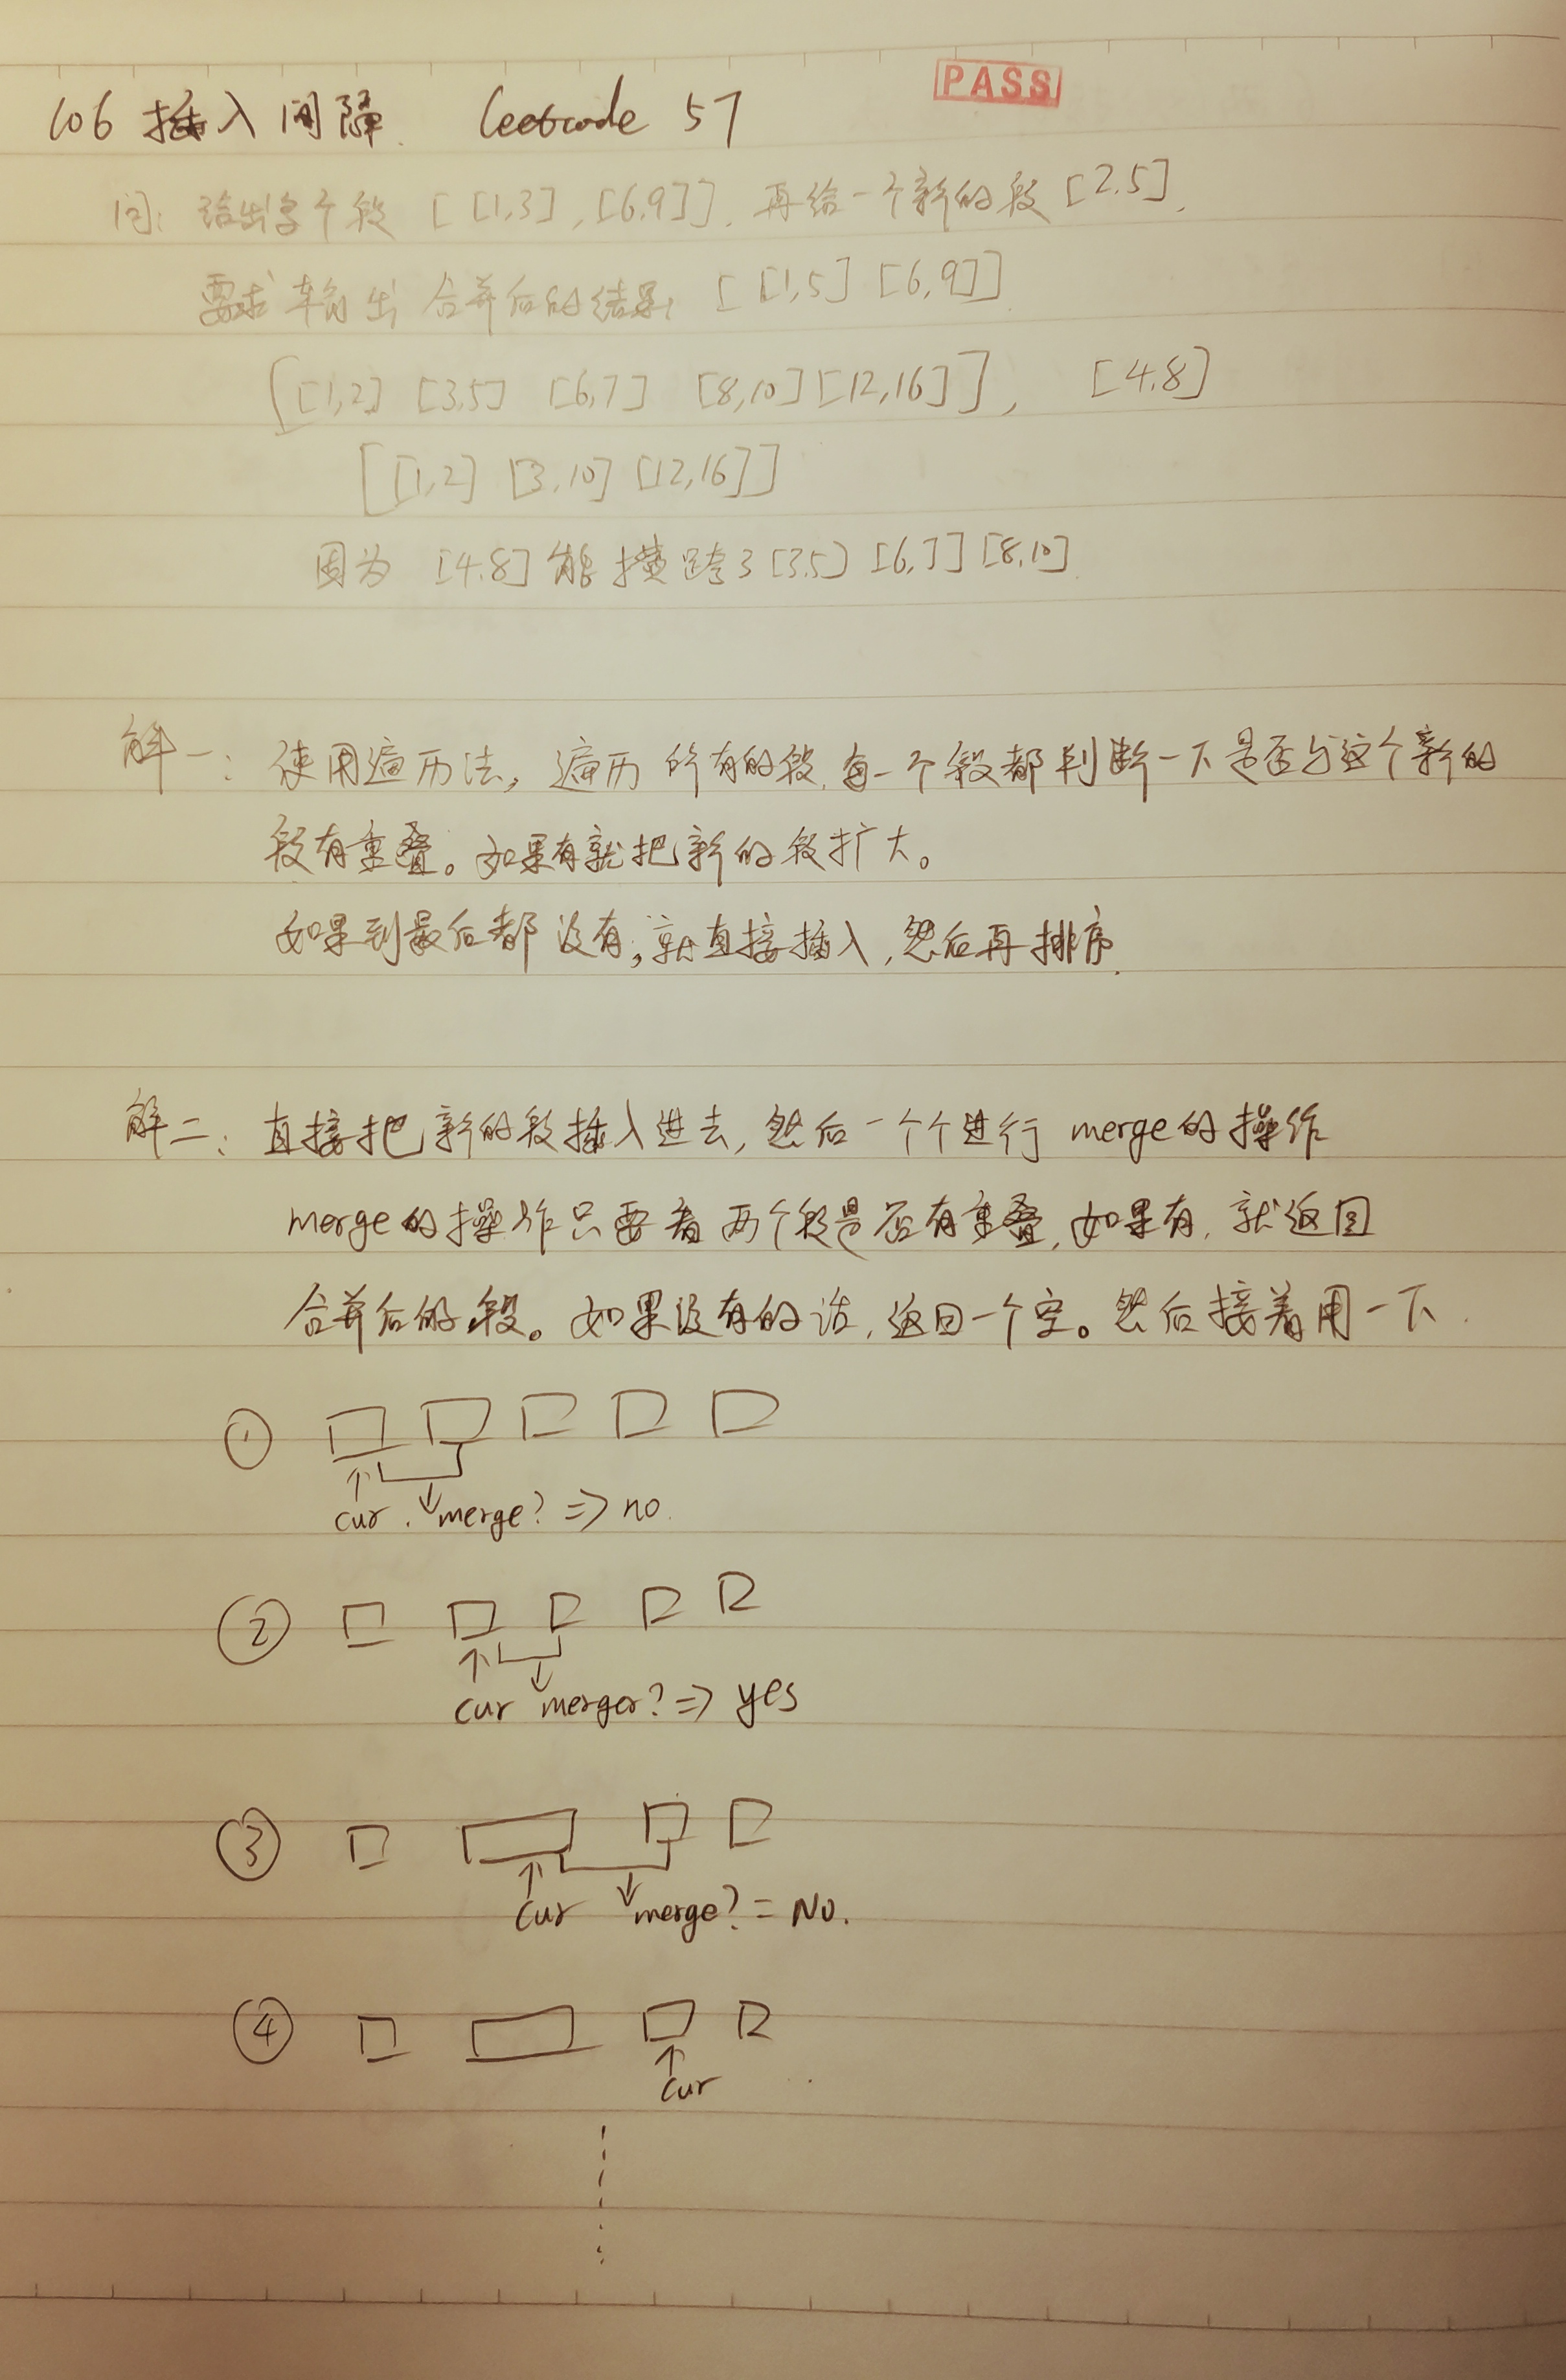 106 插入间隔. Leetcode 57
PASS
问: 给出多个段 [ [1,3] , [6,9] ]. 再给一个新的段 [2,5].
要求输出合并后的结果, [ [1,5] [6,9] ]
[ [1,2] [3,5] [6,7] [8,10] [12,16] ] , [4,8]
[ [1,2] [3,10] [12,16] ]
因为 [4,8] 能横跨了 [3,5] [6,7] [8,10].
解一: 使用遍历法, 遍历所有的段, 每一个段都判断一下是否与这个新的
段有重叠。如果有就把新的段扩大。
如果到最后都没有, 就直接插入, 然后再排序.
解二: 直接把新的段插入进去, 然后一个个进行 merge的操作
merge的操作只要看两个段是否有重叠, 如果有, 就返回
合并后的段。如果没有的话, 返回一个空。然后接着用一下.
①
cur. merge? => no.
②
cur merger? => yes
③
cur merge? = No.
④
cur